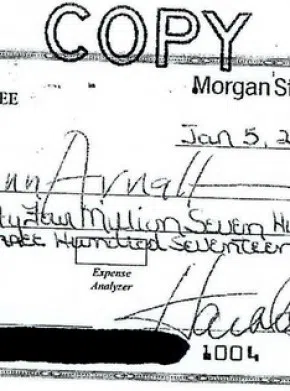 COPY
Morgan St
EE
Jan 5, 2
nn Arnall
ty Four Million Seven Hu
hree Hundred Seventeen
Expense
Analyzer
Harold
1004